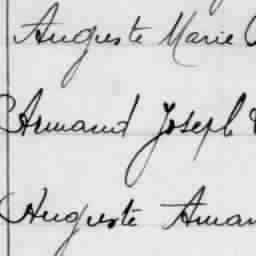 Auguste Marie
Armand Joseph
Auguste Aman